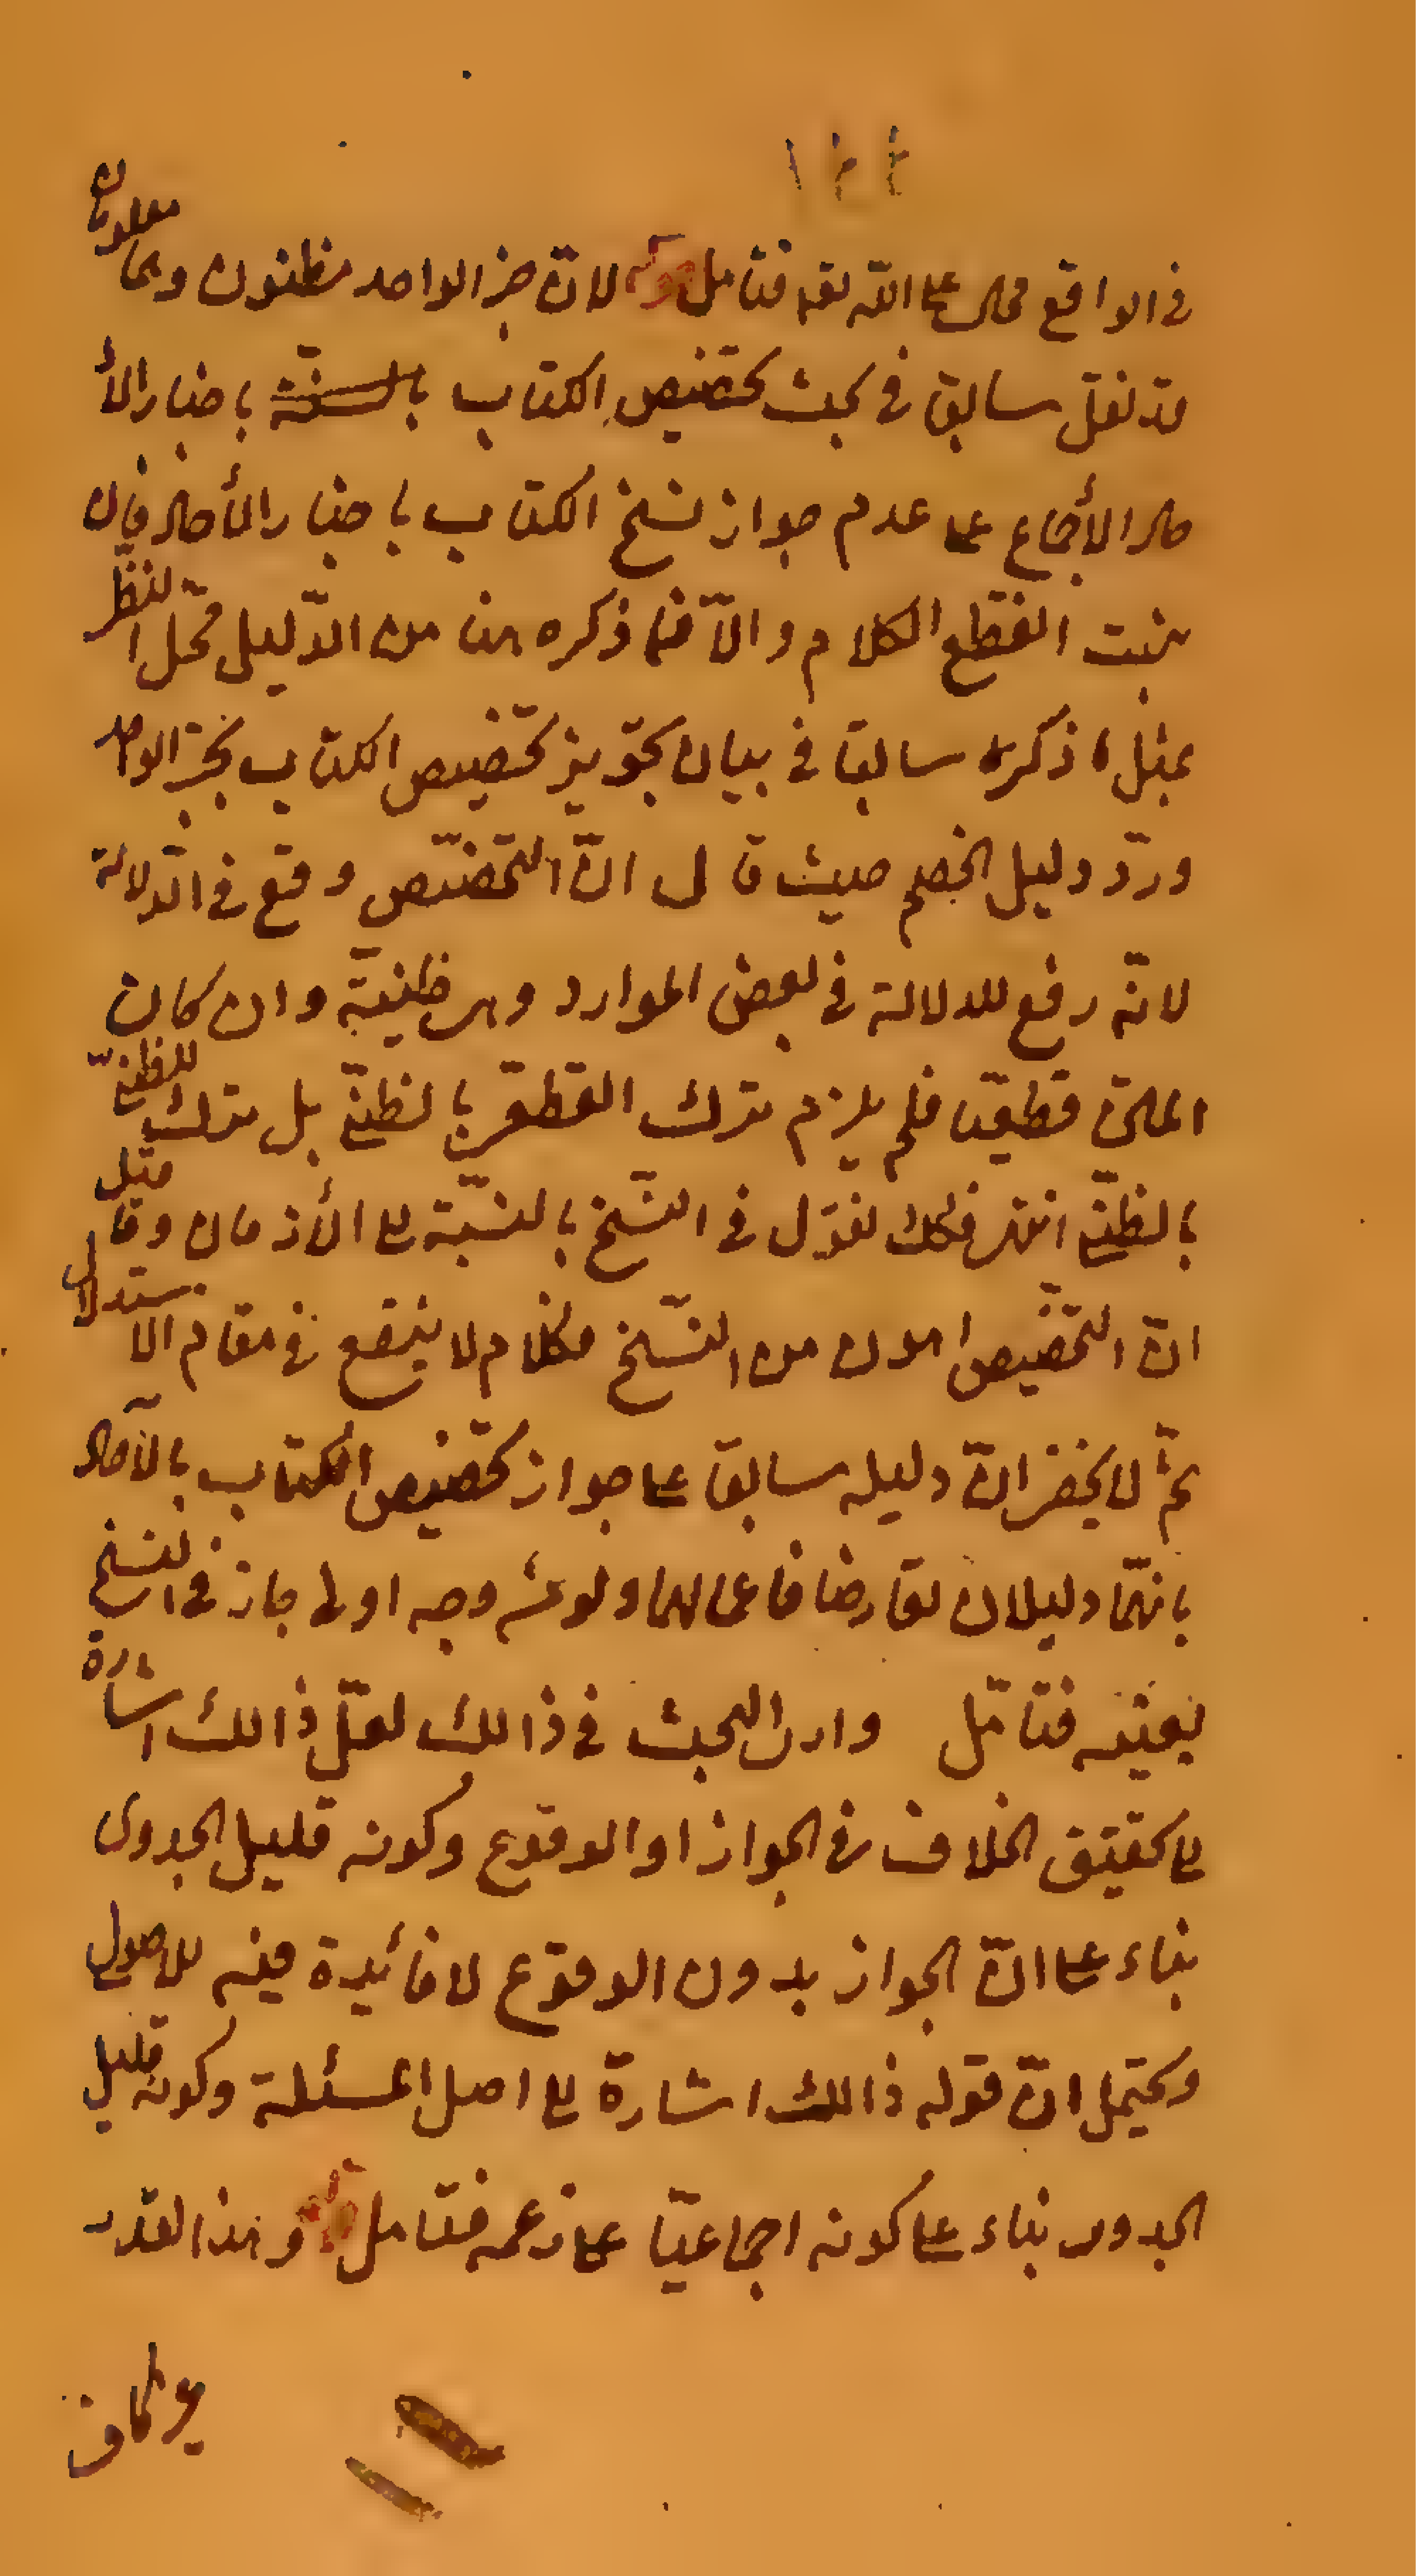 ١٤٤
في الواقع محال على الله تعه فتامل قوله لانّ خبر الواحد مظنون وهما معلومان
قد نقل سابقا في بحث تخصيص الكتاب بالسنّة باخبار الأ
حاد الأجماع على عدم جواز نسخ الكتاب باخبار الأحاد فان
ثبت انقطع الكلام والّا فما ذكره هنا من الدّليل محلّ النظر
بمثل ما ذكره سابقا في بيان تجويز تخصيص الكتاب بخبر الواحد
وردّ دليل الخصم حيث قال انّ التخصيص وقع في الدّلالة
لانّه رفع للدلالة في بعض الموارد وهي ظنيّة وان كان
المتن قطعيّا فلم يلزم ترك القطعي بالظنّي بل ترك الظنّي
بالظنّي انتهى فكك نقول في النّسخ بالنسبة الى الأزمان وما قيل
انّ التخصيص اهون من النّسخ فكلام لا ينفع في مقام الاستدلال
ثمّ لا يخفى انّ دليله سابقا على جواز تخصيص الكتاب بالآحاد
بانهّما دليلان تعارضا فاعمالهما ولو من وجه اولى جاز في النسخ
بعينه فتامّل وادن البحث في ذالك لعلّ ذالك اشارة
الى تحقيق الخلاف في الجواز او الوقوع وكونه قليل الجدوى
بناء على انّ الجواز بدون الوقوع لا فائيدة فيه للاصولي
ويحتمل انّ قوله ذالك اشارة الى اصل المسئلة وكونه قليل
الجدوى بناء على كونه اجماعيّا على زعمه فتامل قوله وهذا القدر
غير كاف